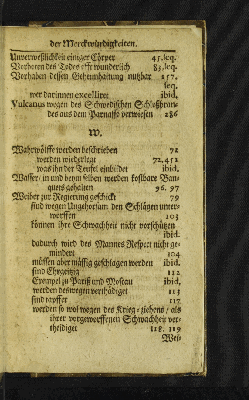 der Merckwürdigkeiten.
Unverweßlichkeit einiger Cörper 45. seq.
Vorboten des Todes offt wunderlich 83. seq.
Vorhaben dessen Geheimhaltung nutzbar 257.
seq.
wer darinnen excellirt ibid.
Vulcanus wegen des Schwedischen Schloßbran-
des aus dem Parnasso verwiesen 286
W.
Wahrwölffe werden beschrieben 72
werden wiederlegt 72. 451
was ihn der Teufel einbildet ibid.
Wasser, in und beym selben werden kostbare Ban-
quets gehalten 96. 97
Weiber zur Regierung geschickt 79
sind wegen Ungehorsam den Schlägen unter-
worffen 103
können ihre Schwachheit nicht vorschützen
ibid.
dadurch wird des Mannes Respect nicht ge-
mindert 104
müssen aber mässig geschlagen werden ibid.
sind Ehrgeitzig 112
Exempel zu Pariß und Moscau ibid.
werden deswegen verthädiget 113
sind tapffer 117
werden so wol wegen des Krieg-ziehens / als
ihrer vorgeworffenen Schwachheit ver-
theidiget 118. 119
Wei-